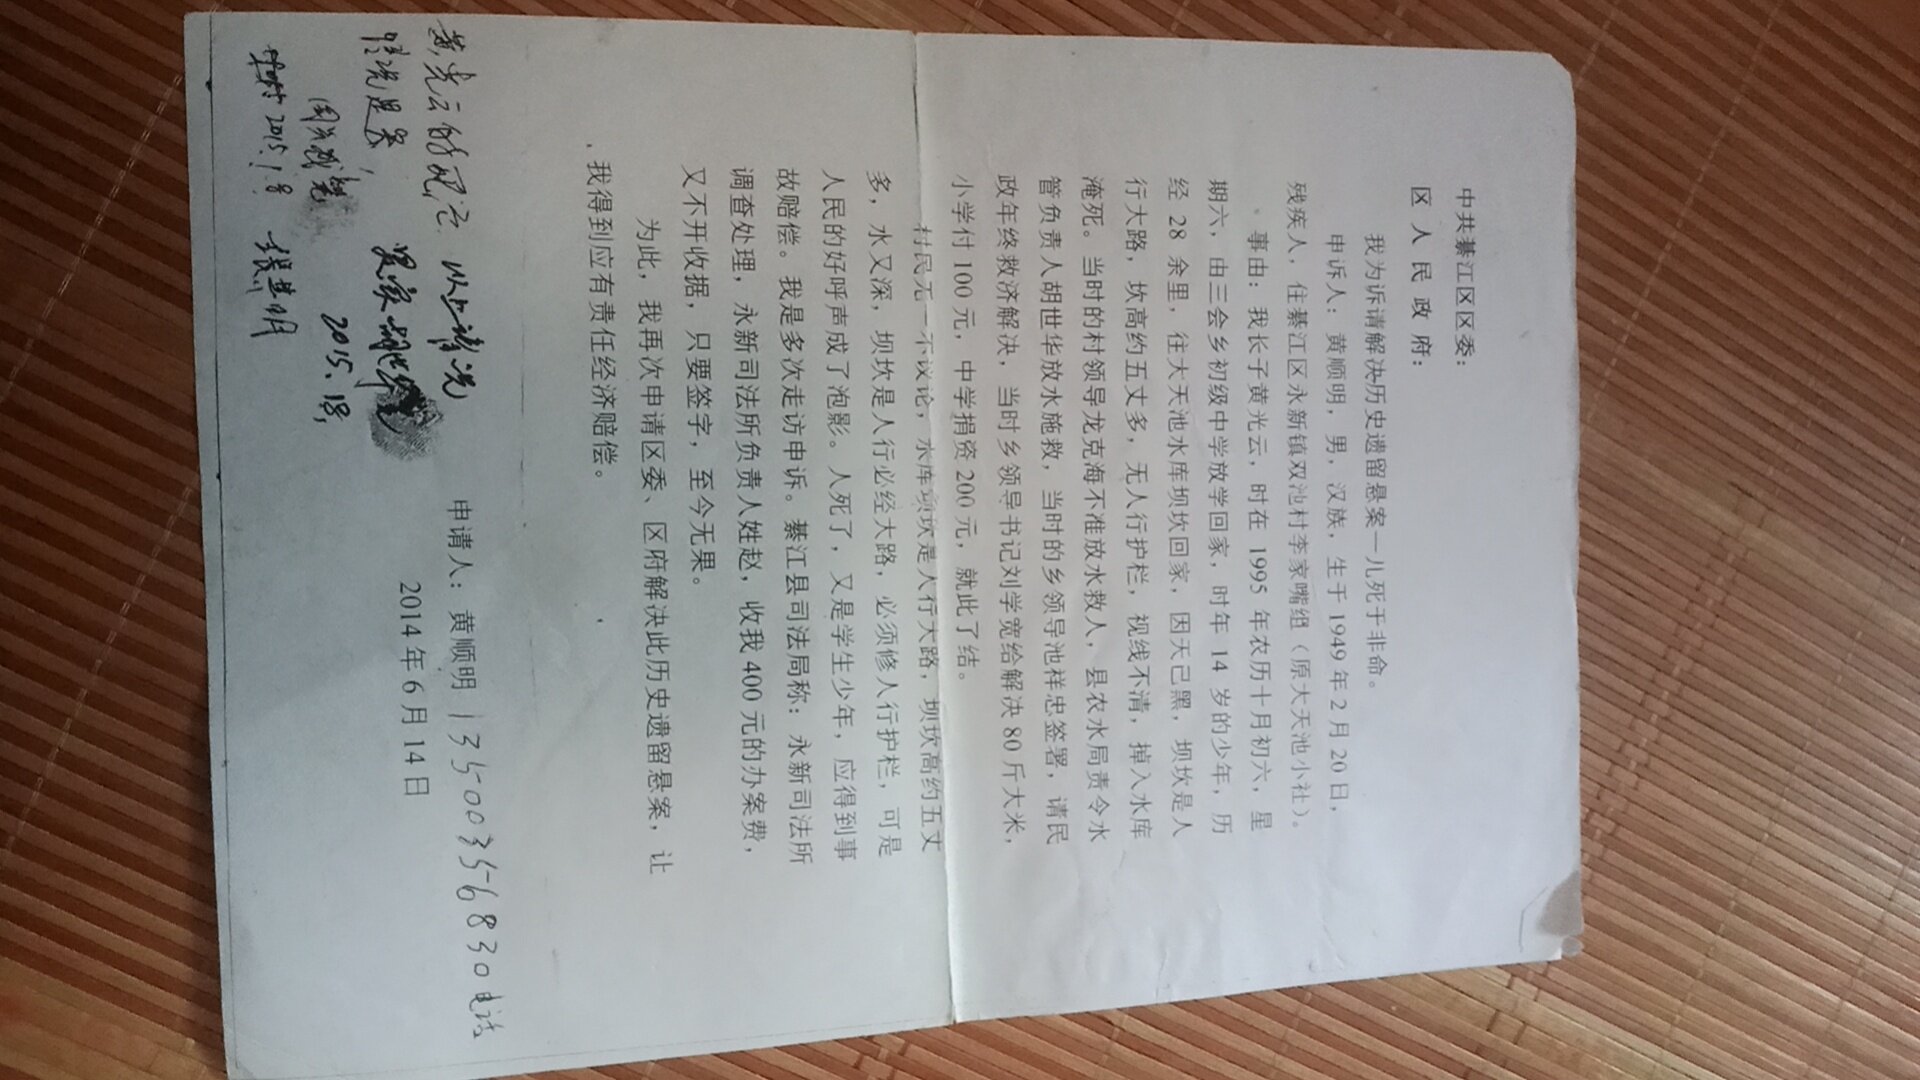 中共綦江区区委：
区人民政府：
我为诉请解决历史遗留悬案一儿死于非命。
申诉人：黄顺明，男，汉族，生于1949年2月20日，
残疾人，住綦江区永新镇双池村李家嘴组（原大天池小社）。
事由：我长子黄光云，时在1995年农历十月初六，星
期六，由三会乡初级中学放学回家，时年14岁的少年，历
经28余里，往大天池水库坝坎回家，因天己黑，坝坎是人
行大路，坎高约五丈多，无人行护栏，视线不清，掉入水库
淹死。当时的村领导龙克海不准放水救人，县农水局责令水
管负责人胡世华放水施救，当时的乡领导池祥忠签署，请民
政年终救济解决，当时乡领导书记刘学宽给解决80斤大米，
小学付100元，中学捐资200元，就此了结。
村民无一不议论，水库坝坎是人行大路，坝坎高约五丈
多，水又深，坝坎是人行必经大路，必须修人行护栏，可是
人民的好呼声成了泡影。人死了，又是学生少年，应得到事
故赔偿。我是多次走访申诉。綦江县司法局称：永新司法所
调查处理，永新司法所负责人姓赵，收我400元的办案费，
又不开收据，只要签字，至今无果。
为此，我再次申请区委、区府解决此历史遗留悬案，让
我得到应有责任经济赔偿。
申请人：黄顺明 13500356830电话
2014年6月14日
黄光云的死亡 以上情况
情况是实 是实
2015.1.8
2015.1.8